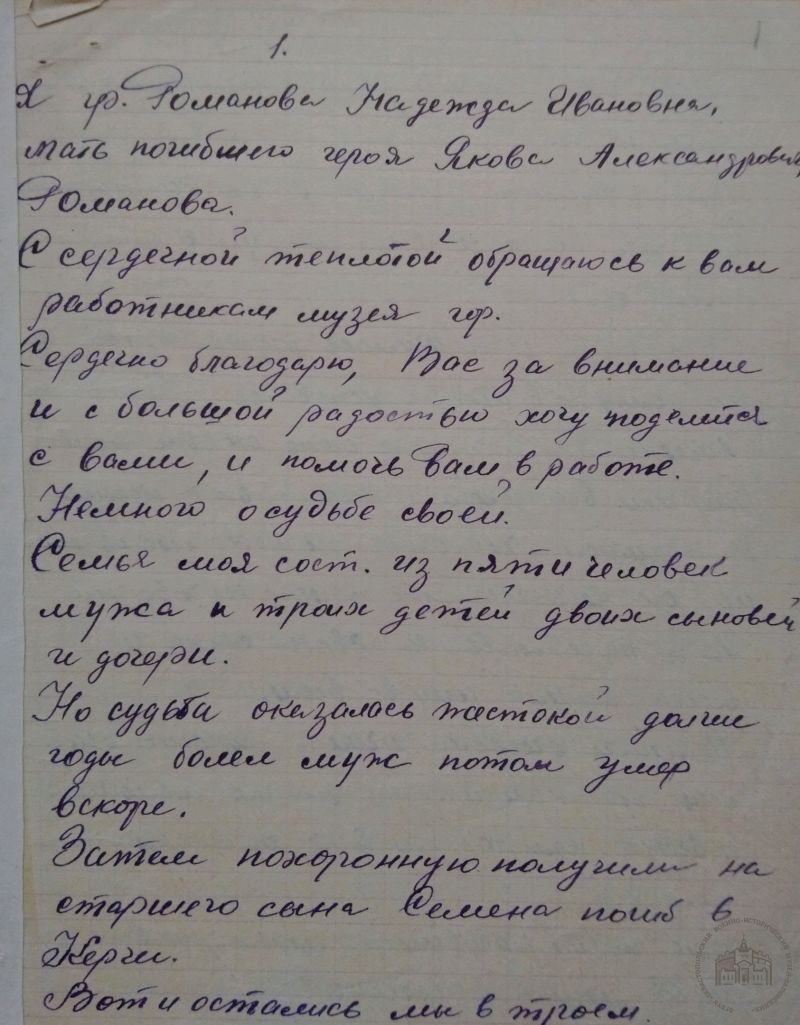 1.
Я гр. Романова Надежда Ивановна,
мать погибшего героя Якова Александровича
Романова.
С сердечной теплотой обращаюсь к вам
работникам музея гор.
Сердечно благодарю, Вас за внимание
и с большой радостью хочу поделится
с вами, и помочь Вам в работе.
Немного о судьбе своей.
Семья моя сост. из пяти человек
мужа и троих детей двоих сыновей
и дочери.
Но судьба оказалась жестокой долгие
годы болел муж потом умер
вскоре.
Затем похоронную получили на
старшего сына Семена погиб в
Керчи.
Вот и остались мы в троем.